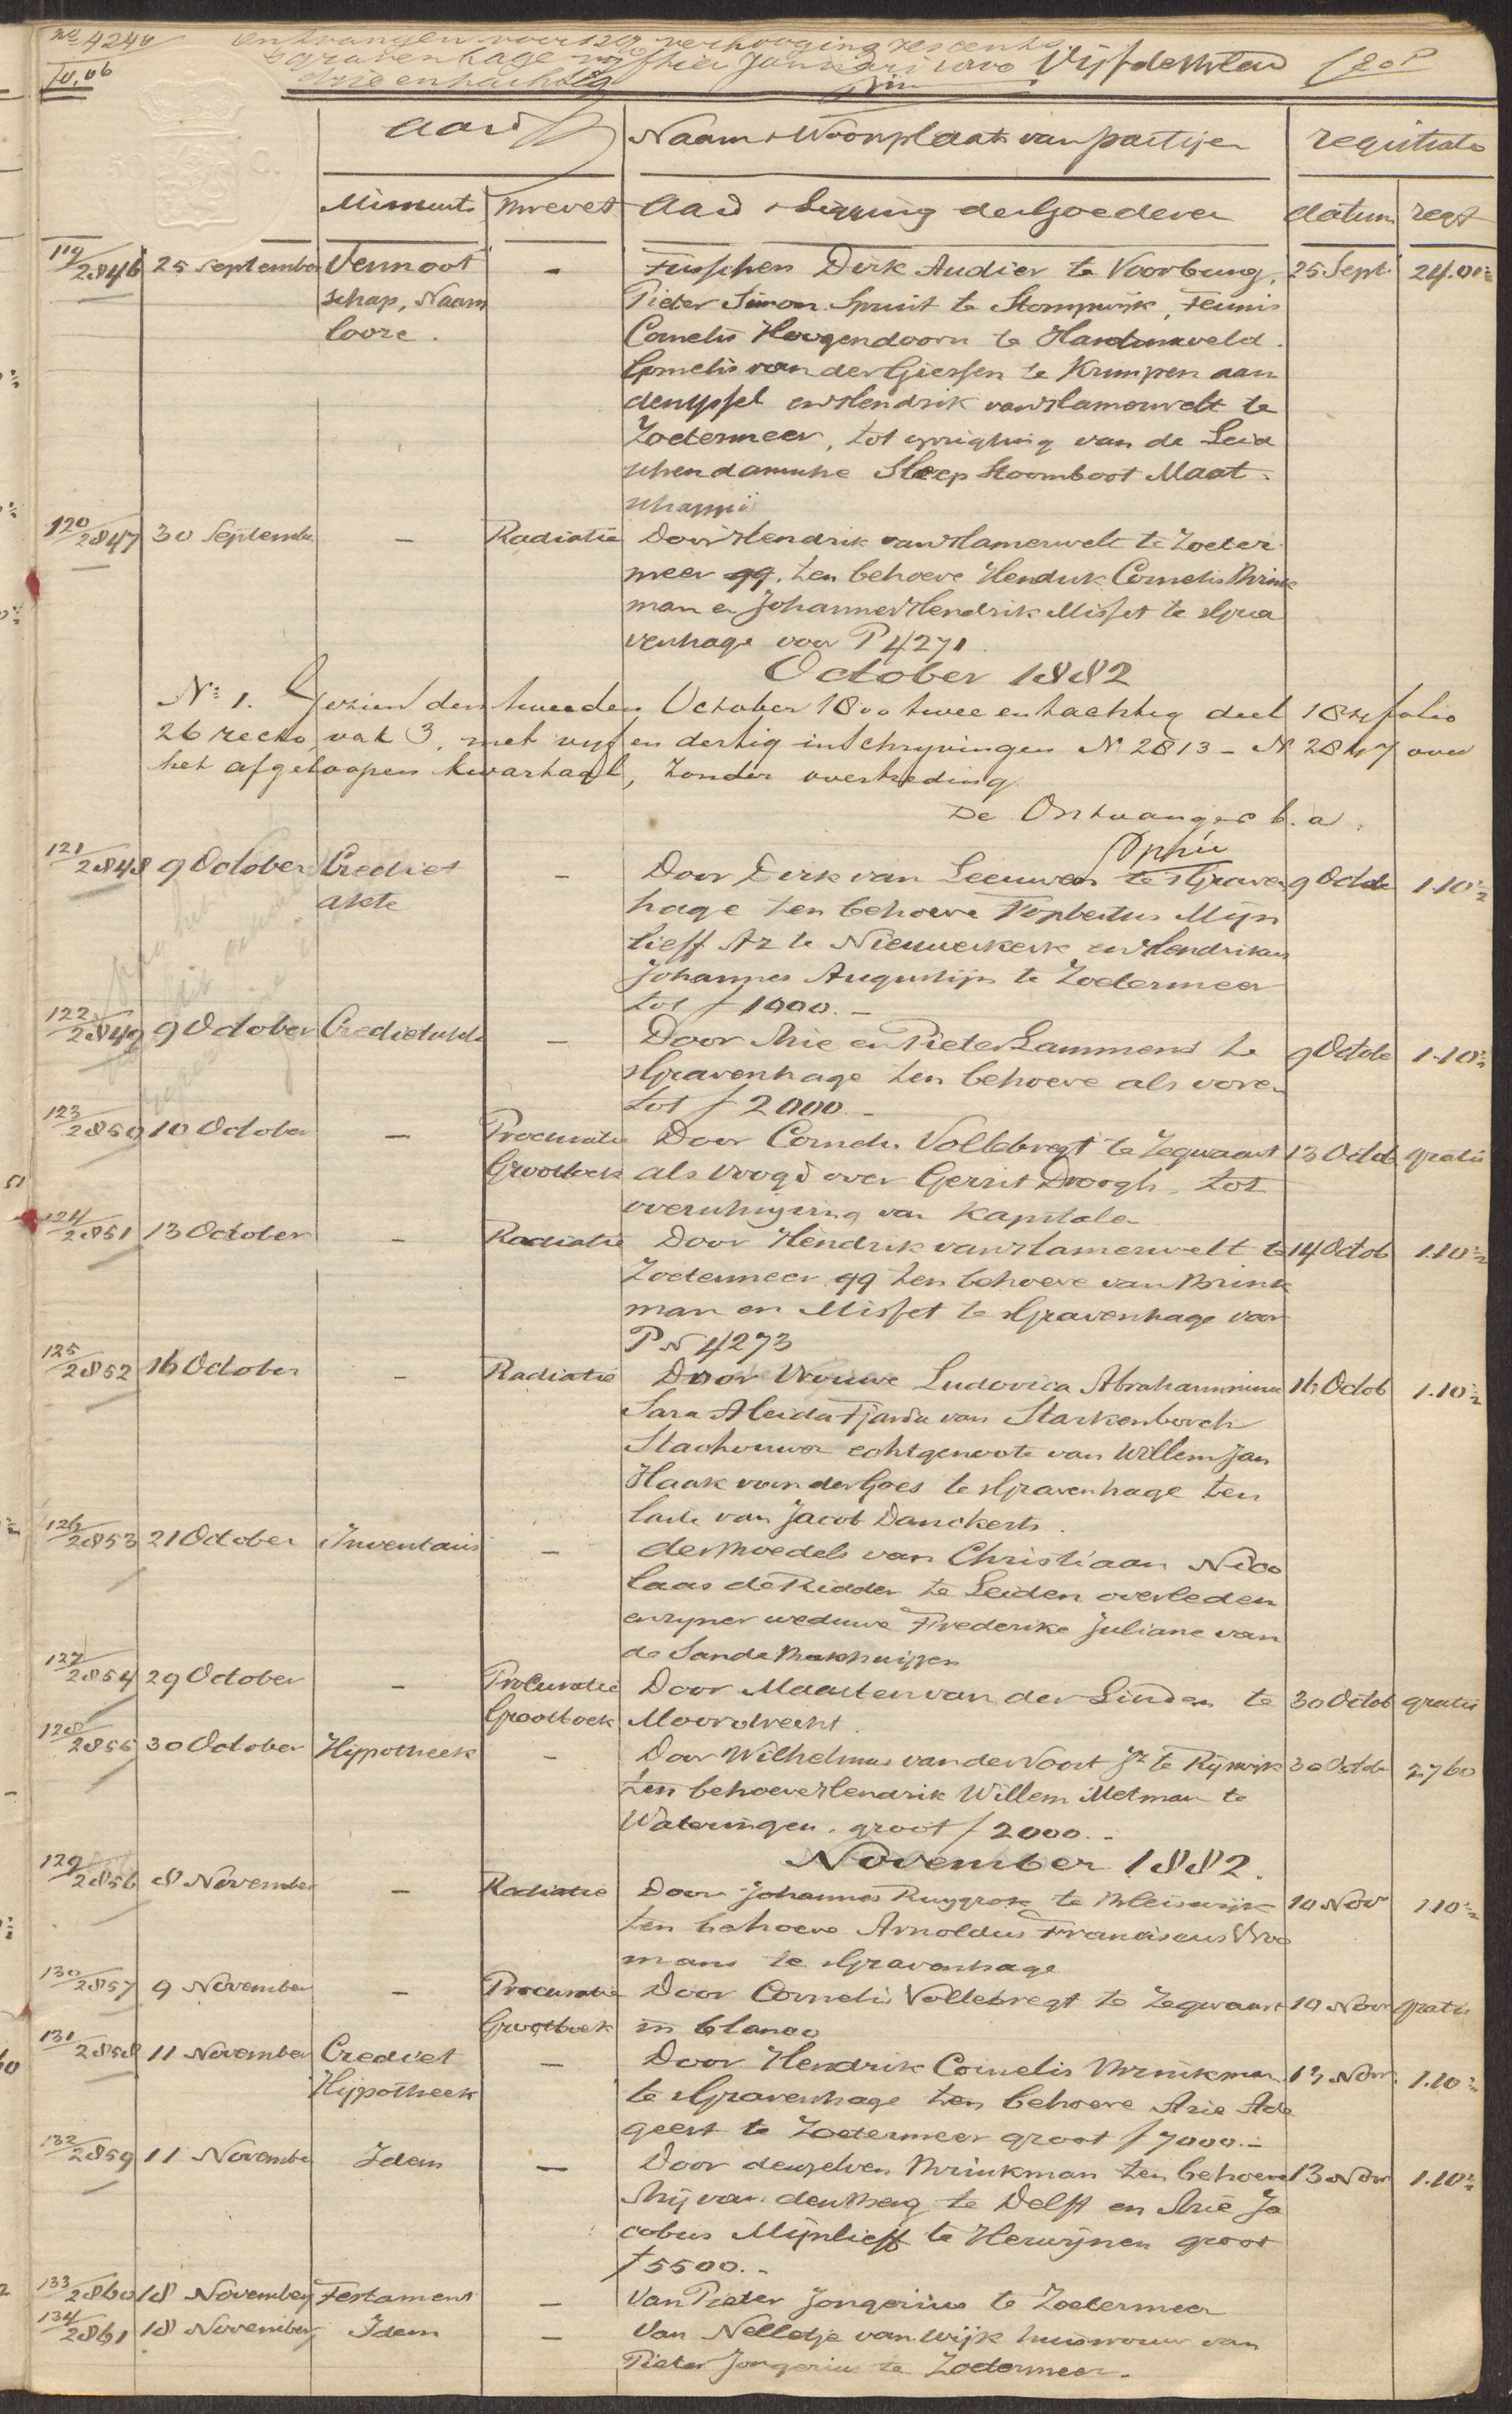 No 4240 ontvangen voor 1207 verhooging zes cents
10,06 sgravenhage Januari 1800 Vijfde blad
drie en tachtig
Aard Naam & Woonplaats van partijen registratie
Minuuts Brevet Aard & Ligging der Goederen datum regt
119/2846 25 September Vennoot - Dirk Audier te Voorburg, 25 Sept. 24.01
schap, Naam Pieter Simon Spruit te Stompwijk, Teunis
looze. Cornelis Hoogendoorn te Hardinxveld.
Cornelis van der Giessen te Krimpen aan
den yssel en Hendrik van Hamerwelt te
Zoetermeer, tot oprigting van de Leid
schendamsche Sleep Stoomboot Maat-
schappij
120/2847 30 September - Radiatie Door Hendrik van Hamerwelt te Zoeter
meer qq. ten behoeve Hendrik Cornelis Brink
man en Johannes Hendrik Misset te sGra
venhage voor P 4271.
October 1882
No 1. Gezien den tweeden October 1800 twee en tachtig deel 18 folio
26 recto, vak 3, met vyf en dertig inschryvingen No 2813 - No 2847 over
het afgeloopen kwartaal, zonder overtreding
De Ontvanger b. a.
121/2848 9 October Crediet - Door Dirk van Leeuwen te sGraven 9 Octob 1.10½
akte hage ten behoeve Mijn
lieff Az te Nieuwerkerk en Hendrikus
Johannes Augustijn te Zoetermeer
tot f 1000.-
122/2849 9 October Credietakte - Door Arie en Pieter Lammens te 9 Octob 1.10½
sGravenhage ten behoeve als voren
tot f 2000.-
123/2850 10 October - Procuratie Door Cornelis Vollebregt te Zegwaart 13 Octob gratis
Grootboek als voogd over Gerrit Droogh, tot
overschrijving van kapitalen
124/2851 13 October - Radiatie Door Hendrik van Hamerwelt te 14 Octob 1.10½
Zoetermeer qq ten behoeve van Brink
man en Misset te sGravenhage voor
P No 4273
125/2852 16 October - Radiatie Door Vrouwe Ludovica Abrahammina 16 Octob 1.10½
Sara Aleida Tjarda van Starkenborch
Stachouwer echtgenoote van Willem Jan
Haak van der Goes te sGravenhage ten
laste van Jacob Danckerts.
126/2853 21 October Inventaris - der boedels van Christiaan Nico
laas de Ridder te Leiden overleden
en zyner weduwe Frederike Juliane van
de Sande Bakhuijzen
127/2854 29 October - Procuratie Door Maarten van der Linden te 30 Octob gratis
Grootboek Moordrecht.
128/2855 30 October Hypotheek - Door Wilhelmus van der Voort Jz te Rijswijk 30 Octob 2760
ten behoeve Hendrik Willem Metman te
Wateringen. groot f 2000.-
November 1882.
129/2856 8 November - Radiatie Door Johannes Ruygrok te Bleiswijk 10 Nov 1.10½
ten behoeve Arnoldus Franciscus Vro
mans te sGravenhage
130/2857 9 November - Procuratie Door Cornelis Vollebregt te Zegwaart 10 Nov gratis
Grootboek in blanco
131/2858 11 November Crediet - Door Hendrik Cornelis Brinkman 13 Nov. 1.10½
Hypotheek te sGravenhage ten behoeve Arie Ade
geest te Zoetermeer groot f 7000.-
132/2859 11 November Idem - Door denzelven Brinkman ten behoeve 13 Nov 1.10½
Arij van den Berg te Delft en Arie Ja
cobus Mijnlieff te Herwijnen groot
f 5500.-
133/2860 18 November Testament - Van Pieter Jongerius te Zoetermeer
134/2861 18 November Idem - Van Nelletje van Wijk huisvrouw van
Pieter Jongerius te Zoetermeer.